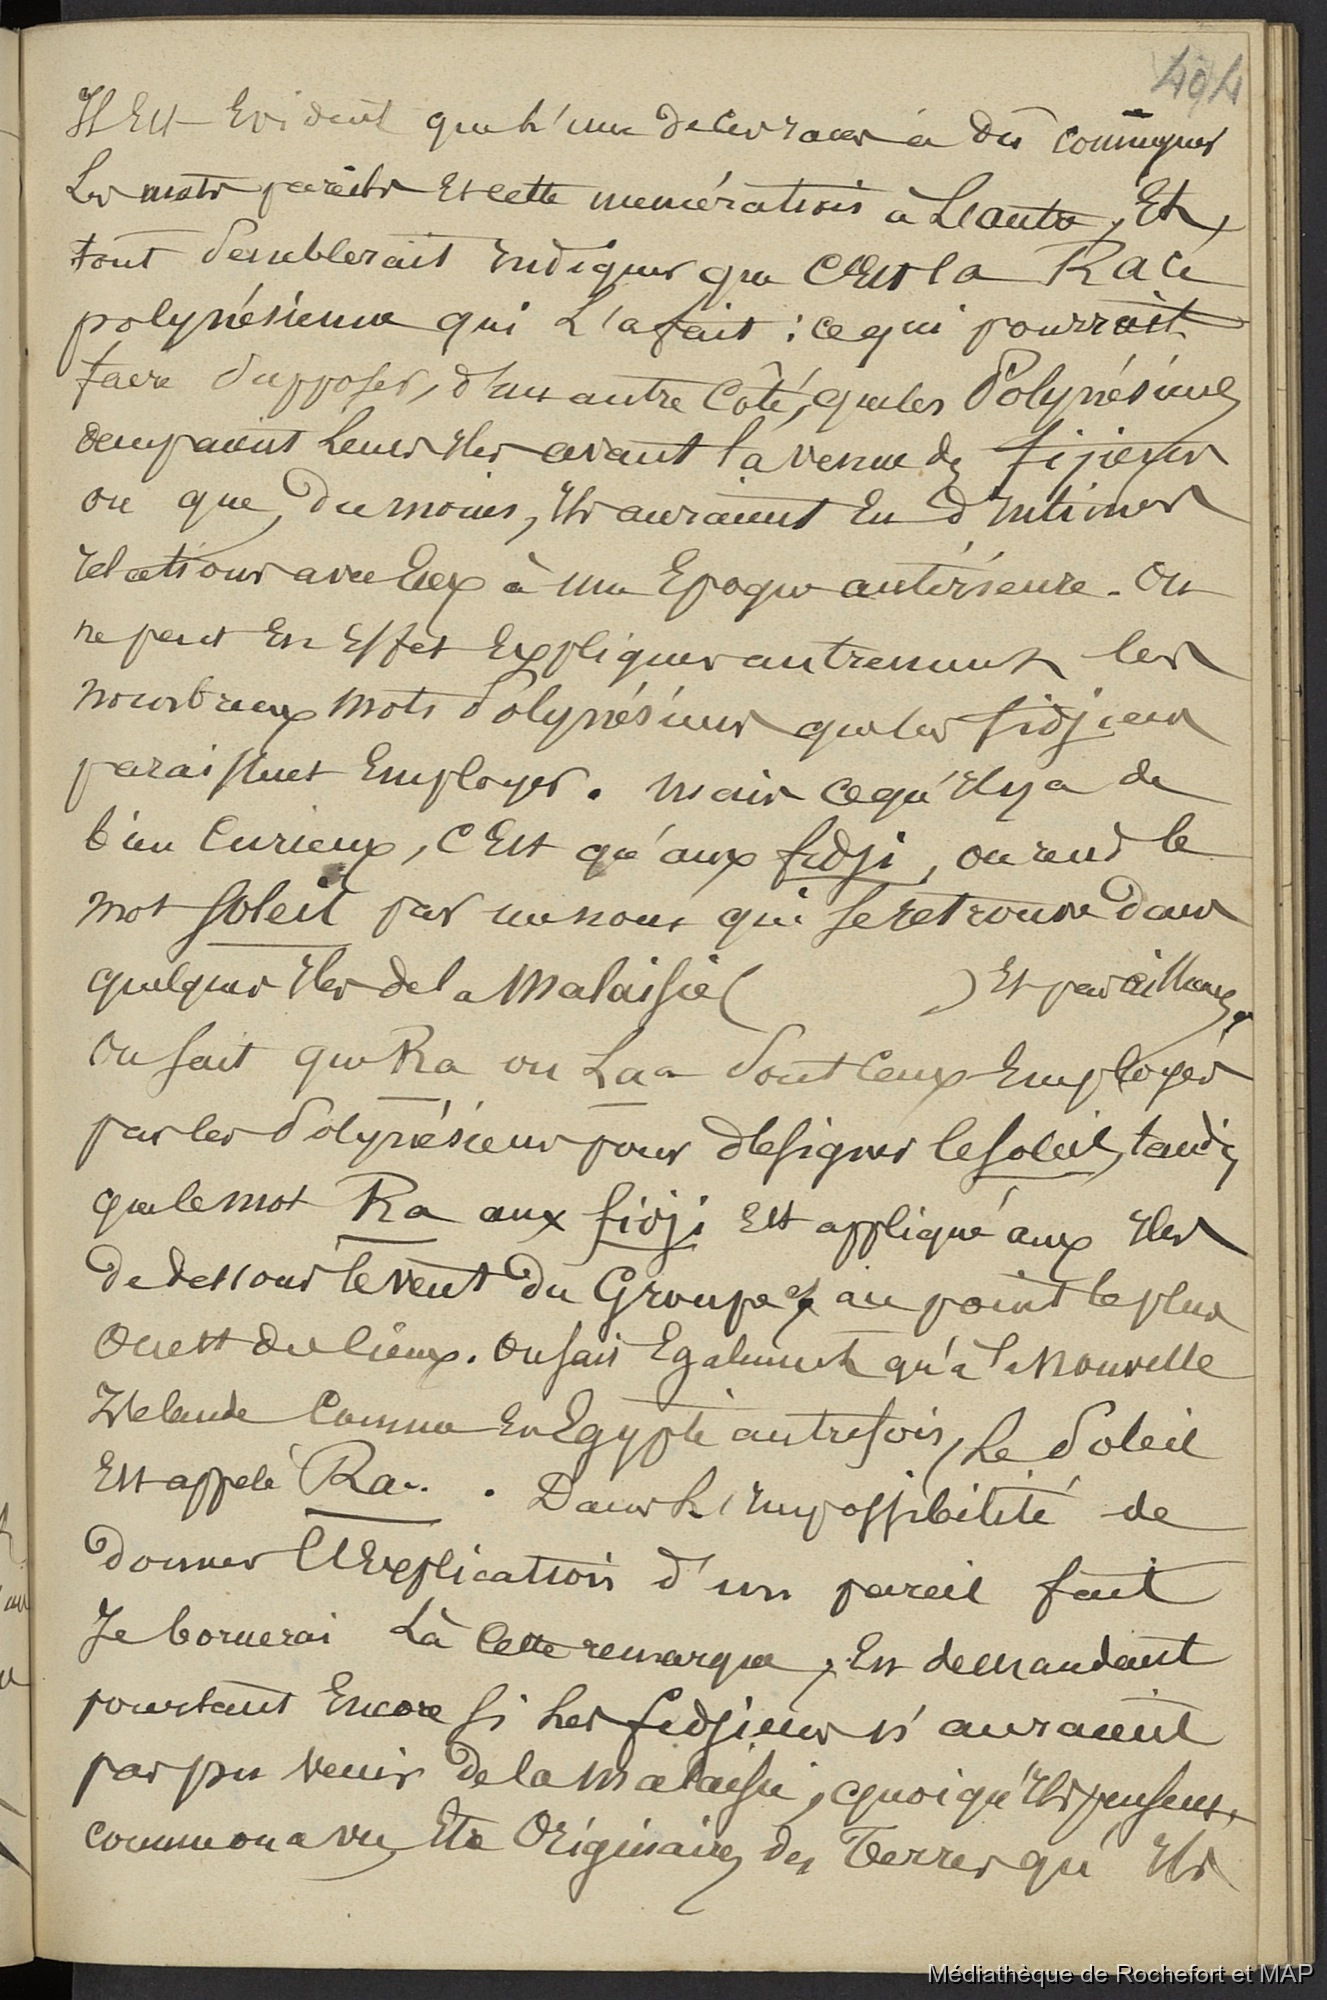 494
Il Est Evident que l'une de ces races a dû communiquer
Les mots pareils Et cette numération à L'autre, Et,
tout semblerait Indiquer que C'Est la Race
polynésienne qui L'a fait : ce qui pourrait
faire supposer, d'un autre Côté, que les Polynésiens
occupaient Leurs Iles avant la venue des fijiens
ou que, Du moins, Ils auraient Eu d'Intimes
relations avec Eux à une Epoque antérieure. On
ne peut En Effet Expliquer autrement les
nombreux mots Polynésiens que les fidjiens
paraissent Employer. Mais ce qu'Il y a de
bien Curieux, C'Est qu'aux fidji, on rend le
mot soleil par un nom qui se retrouve Dans
quelques Iles de la Malaisie ( ) Et par ailleurs,
On sait que Ra ou Laa sont Ceux Employés
par les Polynésiens pour désigner le soleil, tandis
que le mot Ra aux fidji Est appliqué aux Iles
De dessous le vent Du Groupe & au point le plus
Ouest des lieux. On sait Egalement qu'à la Nouvelle
Zélande Comme En Egypte autrefois, Le Soleil
Est appelé Ra. . Dans L'Impossibilité de
Donner L'Explication d'un pareil fait
Je bornerai Là Cette remarque, En demandant
pourtant Encore si Les fidjiens n'auraient
pas pu venir De la Malaisie, quoiqu'Ils pensent,
comme on a vu, Etre Originaires des Terres qu'Ils
Médiathèque de Rochefort et MAP